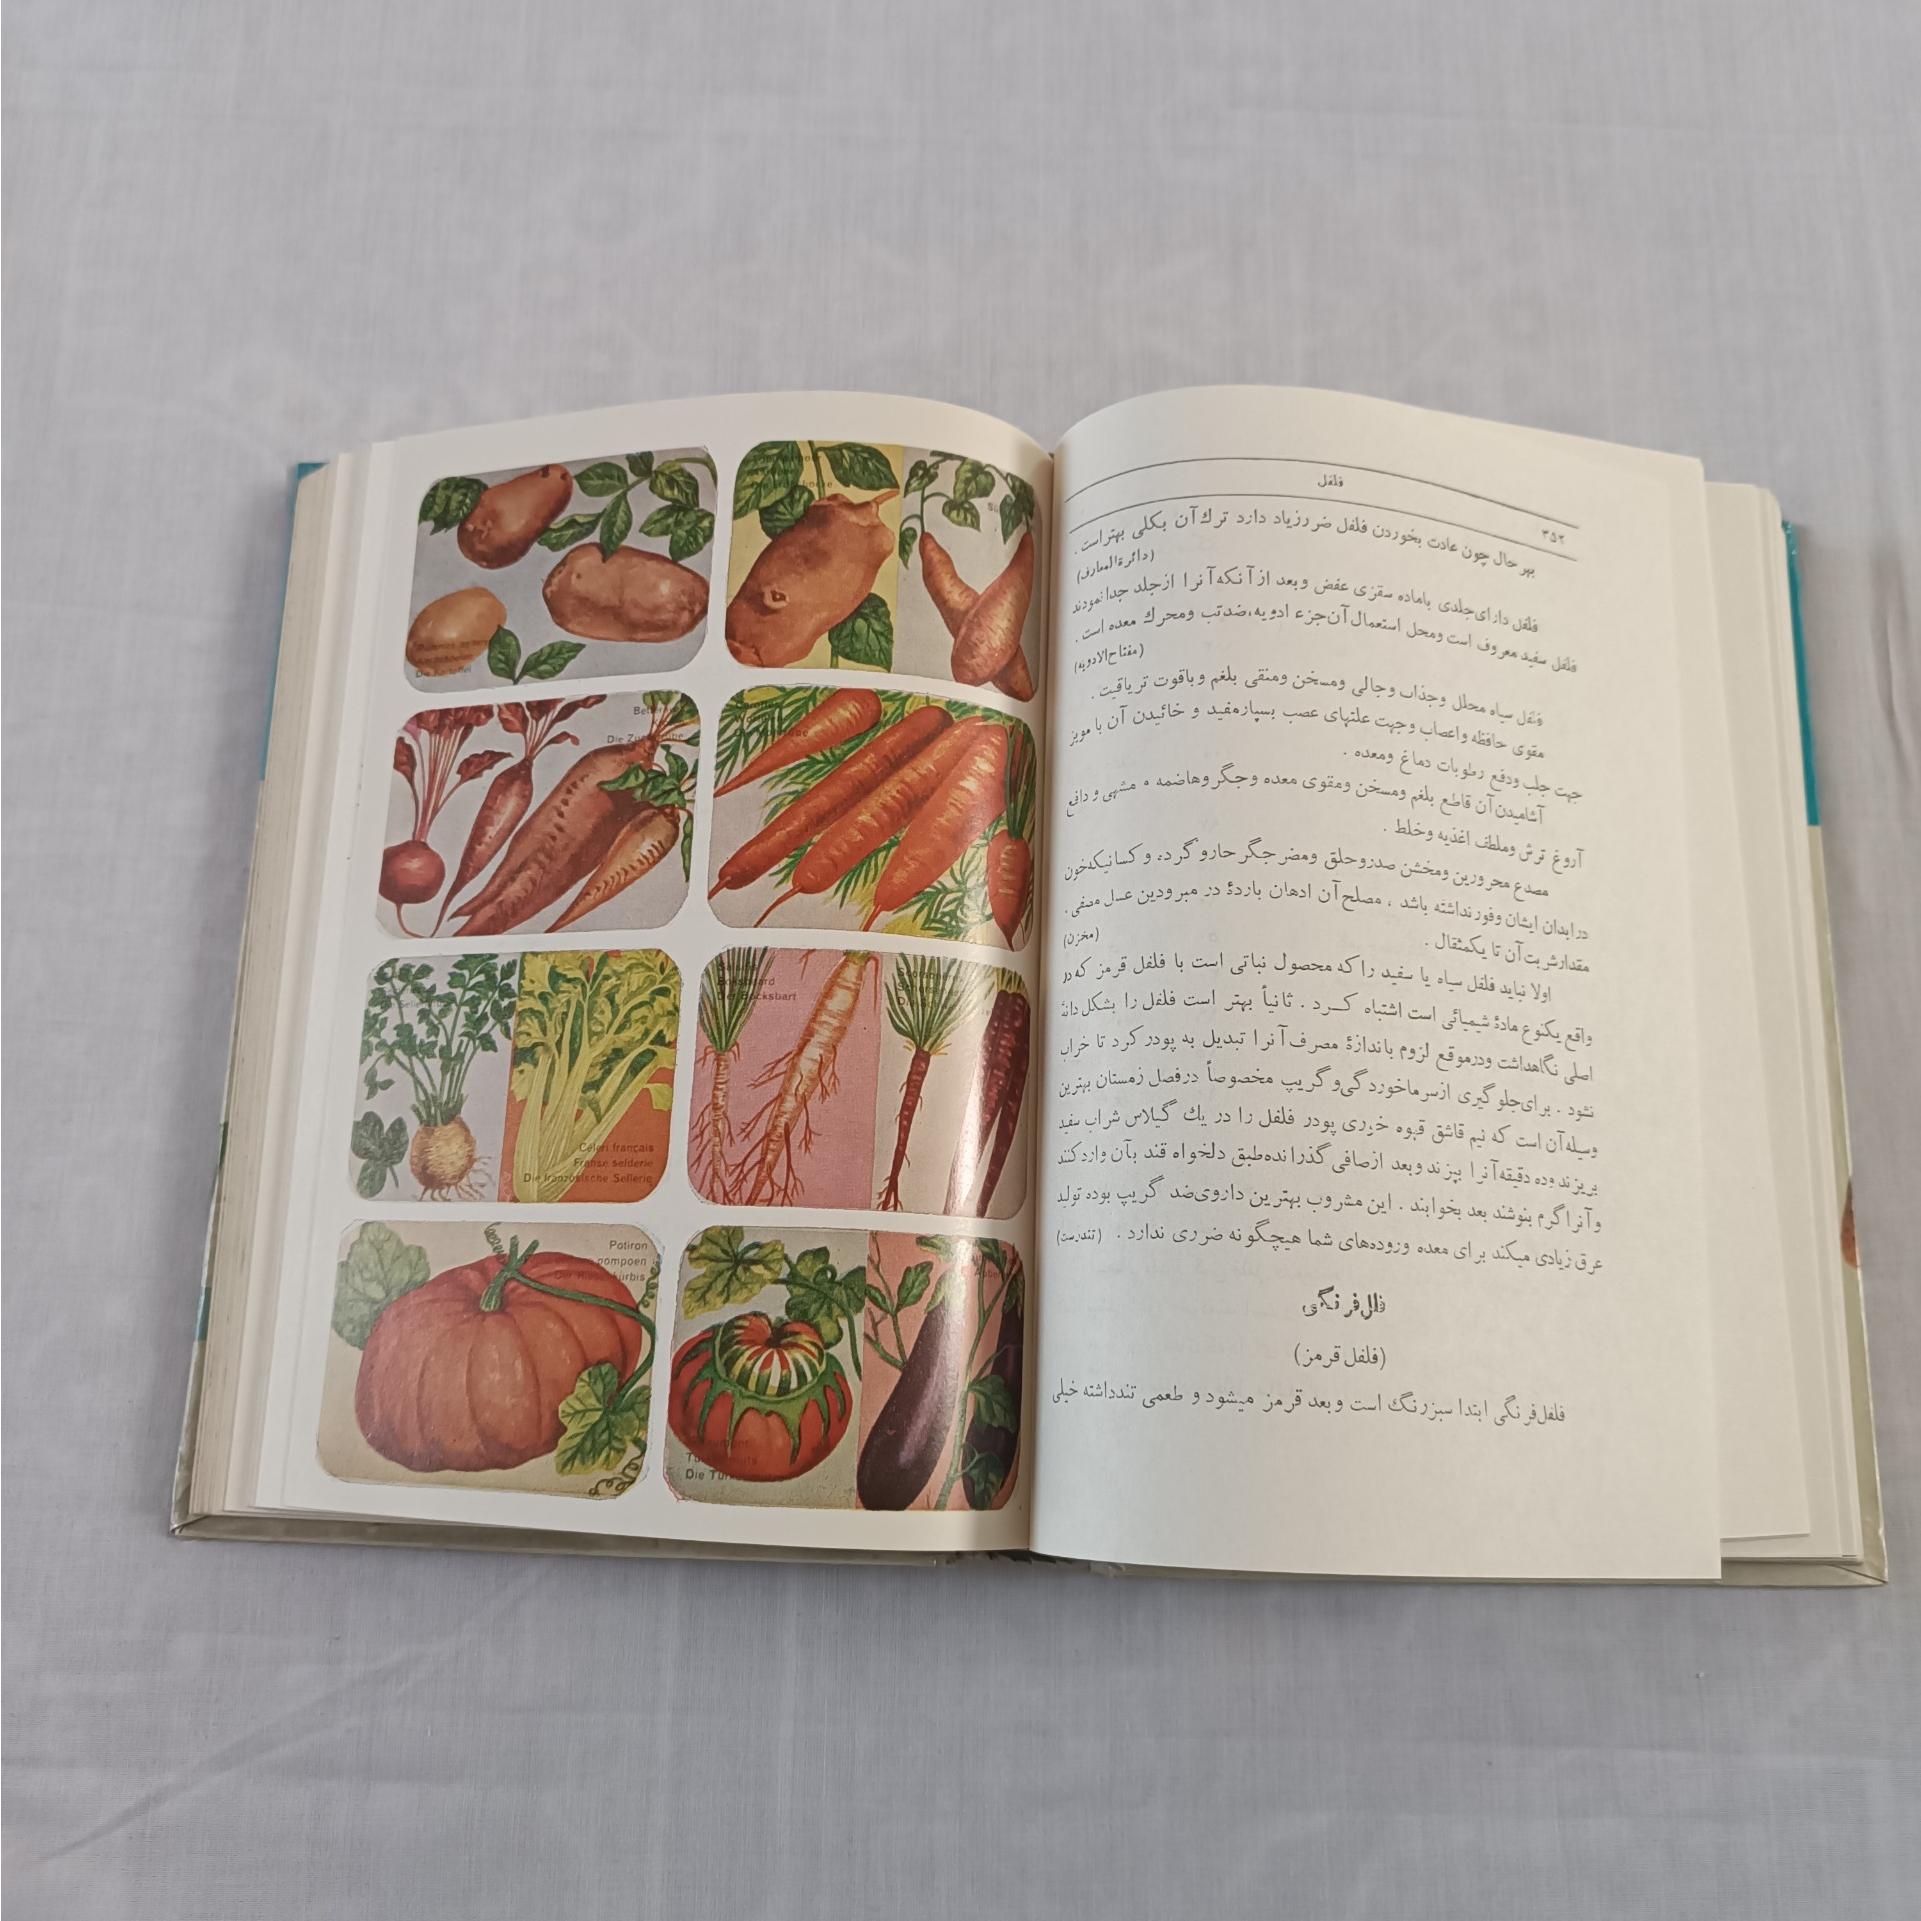 فلفل
۳۵۲
بهر حال چون عادت بخوردن فلفل ضرر زیاد دارد ترك آن بكلی بهتر است .
(دائرة المعارف)
فلفل دارای جلدی با ماده سقزی عفص و بعد از آنكه آنرا از جلد جدا نمودند
فلفل سفید معروف است ومحل استعمال آن جزء ادویه،ضدتب ومحرك معده است .
(مفتاح الادویه)
فلفل سیاه محلل وجذاب وجالی ومسخن ومنقی بلغم وباقوت تریاقیت .
مقوی حافظه واعصاب وجهت علتهای عصب بسیارمفید و خائیدن آن با مویز
جهت جلب ودفع رطوبات دماغ ومعده .
آشامیدن آن قاطع بلغم ومسخن ومقوی معده وجگر وهاضمه ٠ مشهی و دافع
آروغ ترش وملطف اغذیه وخلط .
مصدع محرورین ومخشن صدروحلق ومضر جگر حارو گرده و كسانیكه خون
در ابدان ایشان وفور نداشته باشد ، مصلح آن ادهان باردهٔ در مبرودین عسل مصفی .
مقدار شربت آن تا یكمثقال .
(مخزن)
اولا نباید فلفل سیاه یا سفید را كه محصول نباتی است با فلفل قرمز كه در
واقع یكنوع مادهٔ شیمیائی است اشتباه كــرد . ثانیاً بهتر است فلفل را بشكل دانهٔ
اصلی نگاهداشت ودرموقع لزوم باندازهٔ مصرف آنرا تبدیل به پودر كرد تا خراب
نشود . برای جلوگیری ازسرماخوردگی و گریپ مخصوصاً درفصل زمستان بهترین
وسیله آن است كه نیم قاشق قهوه خوری پودر فلفل را در یك گیلاس شراب سفید
بریزند و ده دقیقه آنرا بپزند وبعد ازصافی گذرانده طبق دلخواه قند بآن وارد كنند
و آنرا گرم بنوشند بعد بخوابند . این مشروب بهترین داروی ضد گریپ بوده تولید
عرق زیادی میكند برای معده وروده‌های شما هیچگونه ضرری ندارد . (تندرست)
فلفل فرنگی
(فلفل قرمز)
فلفل فرنگی ابتدا سبزرنگ است و بعد قرمز میشود و طعمی تند داشته خیلی
Die Kartoffel
Der Bocksbart
Céleri français
Franse selderie
Die französische Sellerie
Potiron
pompoen